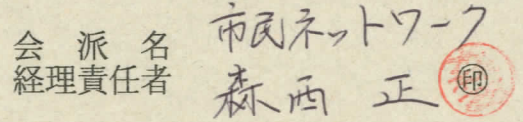 会派名 市民ネットワーク
経理責任者 森西 正 ㊞